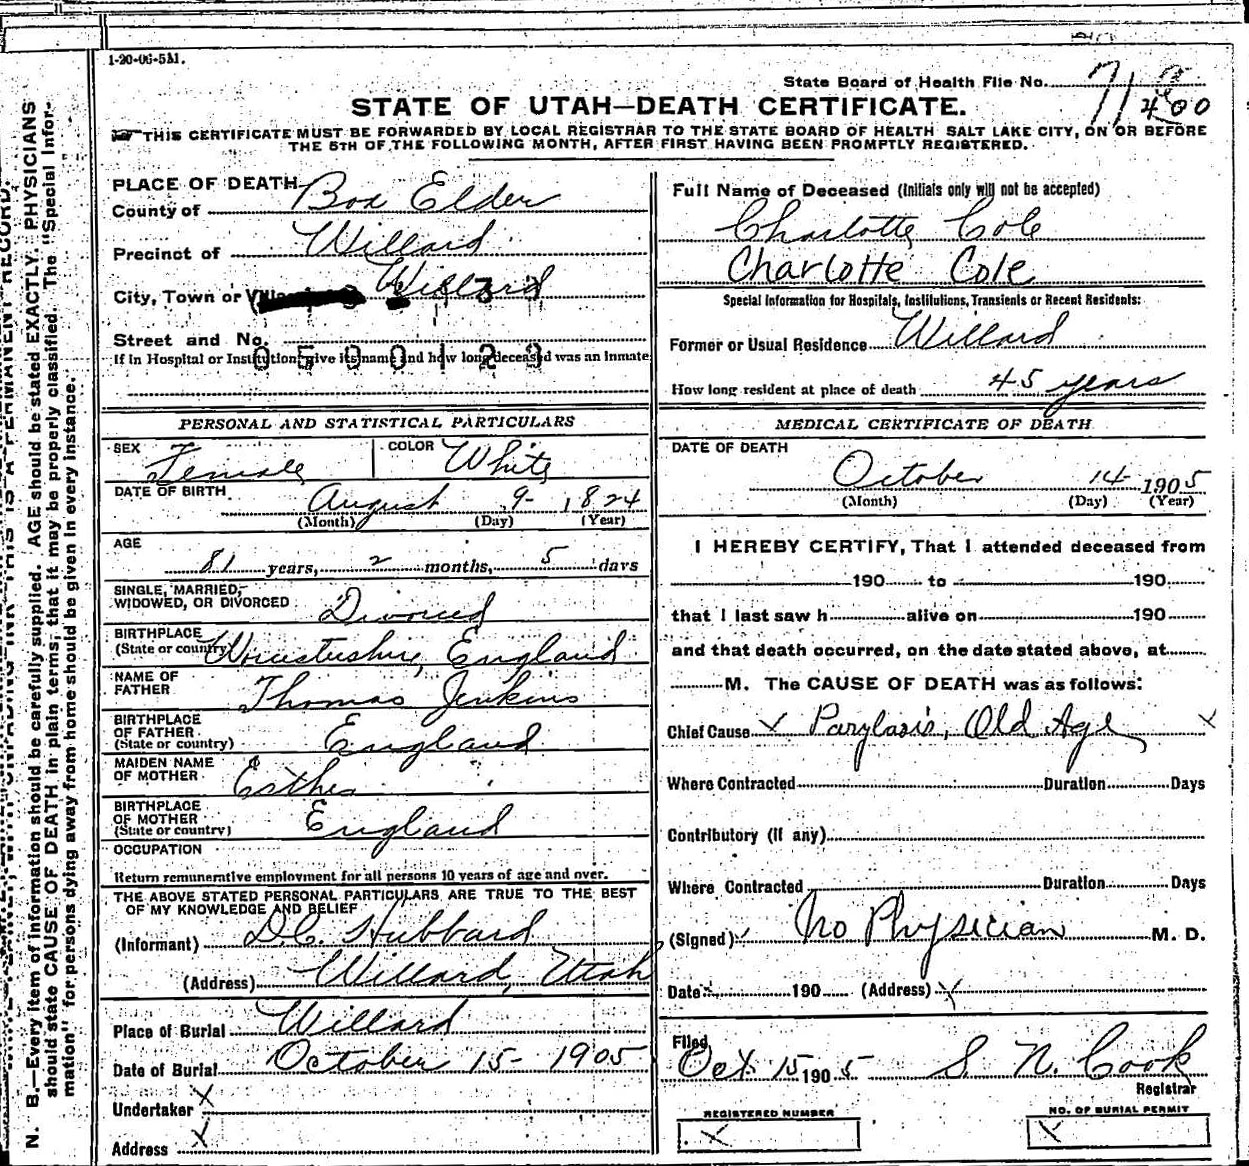 1-20-06-5M.
State Board of Health File No.
400
STATE OF UTAH—DEATH CERTIFICATE.
THIS CERTIFICATE MUST BE FORWARDED BY LOCAL REGISTRAR TO THE STATE BOARD OF HEALTH SALT LAKE CITY, ON OR BEFORE
THE 5TH OF THE FOLLOWING MONTH, AFTER FIRST HAVING BEEN PROMPTLY REGISTERED.
PLACE OF DEATH
County of Box Elder
Precinct of Willard
City, Town or Willard
Street and No.
0500123
If in Hospital or Institution, give its name and how long deceased was an inmate
PERSONAL AND STATISTICAL PARTICULARS
SEX Female COLOR White
DATE OF BIRTH August 9- 1824
(Month) (Day) (Year)
AGE
81 years, 2 months, 5 days
SINGLE, MARRIED,
WIDOWED, OR DIVORCED Divorced
BIRTHPLACE
(State or country) Worcestershire, England
NAME OF
FATHER Thomas Jenkins
BIRTHPLACE
OF FATHER
(State or country) England
MAIDEN NAME
OF MOTHER Esther
BIRTHPLACE
OF MOTHER
(State or country) England
OCCUPATION
Return remunerative employment for all persons 10 years of age and over.
THE ABOVE STATED PERSONAL PARTICULARS ARE TRUE TO THE BEST
OF MY KNOWLEDGE AND BELIEF
(Informant) D.C. Hubbard
(Address) Willard, Utah
Place of Burial Willard
Date of Burial October 15- 1905
Undertaker X
Address X
Full Name of Deceased (Initials only will not be accepted)
Charlotte Cole
Charlotte Cole
Special Information for Hospitals, Institutions, Transients or Recent Residents:
Former or Usual Residence Willard
How long resident at place of death 45 years
MEDICAL CERTIFICATE OF DEATH
DATE OF DEATH
October 14- 1905
(Month) (Day) (Year)
I HEREBY CERTIFY, That I attended deceased from
190 to 190
that I last saw h alive on 190
and that death occurred, on the date stated above, at
M. The CAUSE OF DEATH was as follows:
Chief Cause X Parylasis, Old Age X
Where Contracted Duration Days
Contributory (if any)
Where Contracted Duration Days
(Signed) No Physician M. D.
Date 190 (Address) X
Filed
Oct 15 1905 S. N. Cook
Registrar
REGISTERED NUMBER
X
NO. OF BURIAL PERMIT
X
N. B.—Every item of information should be carefully supplied. AGE should be stated EXACTLY. PHYSICIANS
should state CAUSE OF DEATH in plain terms, that it may be properly classified. The "Special Infor-
mation" for persons dying away from home should be given in every instance.